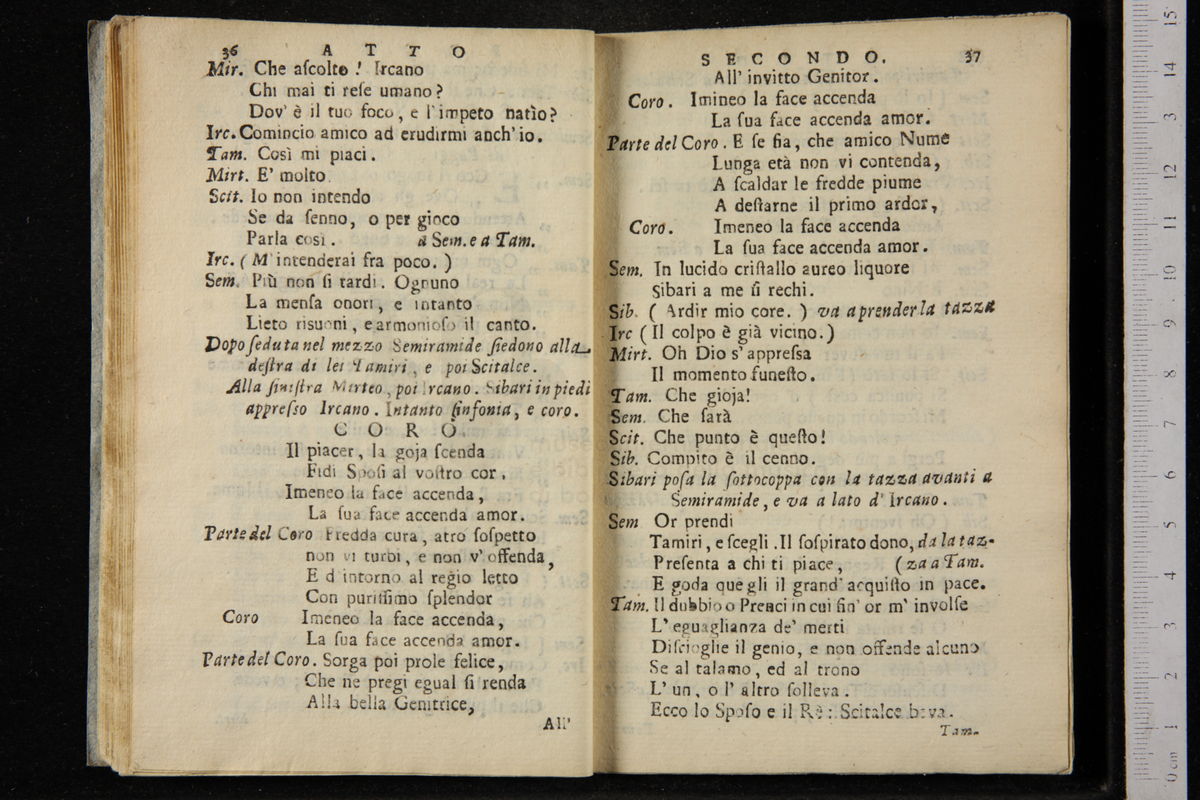 36 ATTO
Mir. Che aſcolto! Ircano
Chi mai ti reſe umano?
Dov' è il tuo foco, e l'impeto natìo?
Irc. Comincio amico ad erudirmi anch'io.
Tam. Così mi piaci.
Mirt. E' molto.
Scit. Io non intendo
Se da ſenno, o per gioco
Parla così. a Sem. e a Tam.
Irc. ( M' intenderai fra poco. )
Sem. Più non ſi tardi. Ognuno
La menſa onori, e intanto
Lieto riſuoni, e armonioſo il canto.
Dopo ſeduta nel mezzo Semiramide ſiedono alla
deſtra di lei Tamiri, e poi Scitalce.
Alla ſiniſtra Mirteo, poi Ircano. Sibari in piedi
appreſſo Ircano. Intanto ſinfonia, e coro.
CORO.
Il piacer, la goja ſcenda
Fidi Spoſi al voſtro cor,
Imeneo la face accenda,
La ſua face accenda amor.
Parte del Coro Fredda cura, atro ſoſpetto
non vi turbi, e non v' offenda,
E d'intorno al regio letto
Con puriſſimo ſplendor
Coro Imeneo la face accenda,
La ſua face accenda amor.
Parte del Coro. Sorga poi prole felice,
Che ne pregi egual ſi renda
Alla bella Genitrice,
All'
SECONDO. 37
All' invitto Genitor.
Coro. Imineo la face accenda
La ſua face accenda amor.
Parte del Coro. E ſe fia, che amico Nume
Lunga età non vi contenda,
A ſcaldar le fredde piume
A deſtarne il primo ardor,
Coro. Imeneo la face accenda
La ſua face accenda amor.
Sem. In lucido criſtallo aureo liquore
Sibari a me ſi rechi.
Sib. ( Ardir mio core. ) va a prender la tazza
Irc ( Il colpo è già vicino. )
Mirt. Oh Dio s' appreſſa
Il momento funeſto.
Tam. Che gioja!
Sem. Che ſarà
Scit. Che punto è queſto!
Sib. Compito è il cenno.
Sibari poſa la ſottocoppa con la tazza avanti a
Semiramide, e va a lato d' Ircano.
Sem Or prendi
Tamiri, e ſcegli. Il ſoſpirato dono, da la taz-
Preſenta a chi ti piace, ( za a Tam.
E goda quegli il grand' acquiſto in pace.
Tam. Il dubbio o Prenci in cui fin' or m' involſe
L' eguaglianza de' merti
Diſcioglie il genio, e non offende alcuno
Se al talamo, ed al trono
L' un, o l' altro ſolleva.
Ecco lo Spoſo e il Rè: Scitalce beva.
Tam.